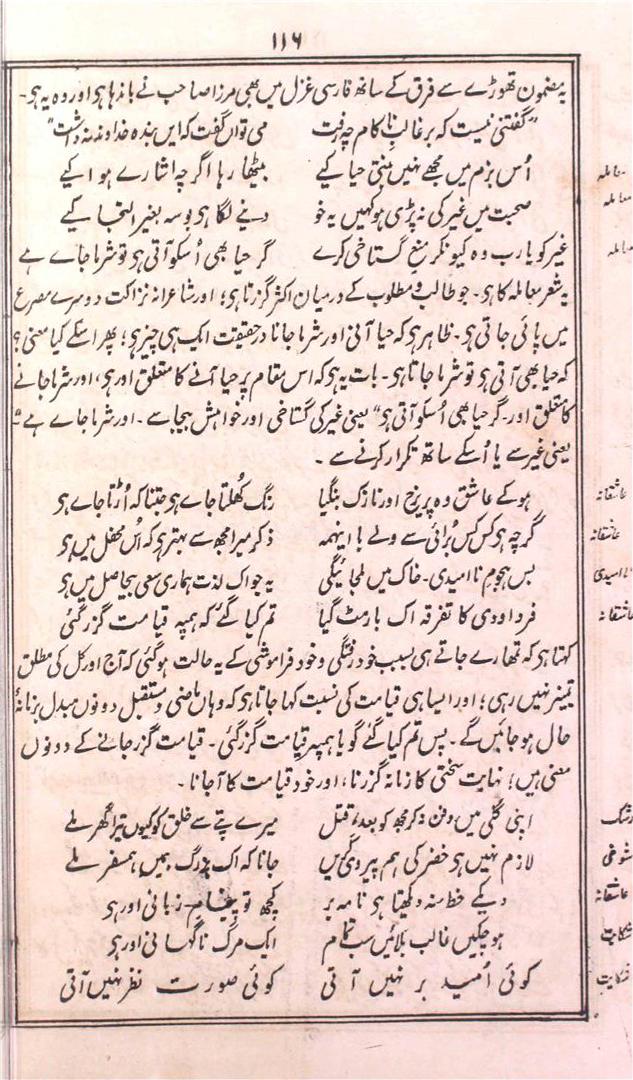 ۱۱۶
یہ مضمون تھوڑے سے فرق کے ساتھ فارسی غزل میں بھی مرزا صاحب نے باندھا ہو اور وہ یہ ہو۔
"گفتنی نیست کہ بر غالب ناکام چہ رفت می تواں گفت کہ ایں بندہ خداوند نہ داشت"
اُس بزم میں مجھے نہیں بنتی حیا کیے بیٹھا رہا اگرچہ اشارے ہوا کیے معاملہ
صحبت میں غیر کی نہ پڑی ہو کہیں یہ خو دینے لگا ہو بوسہ بغیر التجا کیے معاملہ
غیر کو یارب وہ کیونکر منع گستاخی کرے گر حیا بھی اُسکو آتی ہو تو شرما جاے ہے معاملہ
یہ شعر معاملہ کا ہو۔ جو طالب و مطلوب کے درمیان اکثر گزرتا ہو؛ اور شاعرانہ نزاکت دوسرے مصرع
میں پائی جاتی ہو۔ ظاہر ہو کہ حیا آنی اور شرما جانا درحقیقت ایک ہی چیز ہو؛ پھر اسکے کیا معنی؟
کہ حیا بھی آتی ہو تو شرما جاتا ہو۔ بات یہ ہو کہ اس مقام پر حیا آنے کا متعلق اور ہو، اور شرما جانے
کا متعلق اور۔ گر حیا بھی اُسکو آتی ہو" یعنی غیر کی گستاخی اور خواہش بیجا سے۔ اور شرما جاے ہے"
یعنی غیر سے یا اُسکے ساتھ تکرار کرنے سے۔
ہو کے عاشق وہ پریرخ اور نازک بنگیا رنگ کُھلتا جاے ہو جتنا کہ اُڑتا جاے ہو عاشقانہ
گرچہ ہو کس کس بُرائی سے ولے با اینہمہ ذکر میرا مجھ سے بہتر ہو کہ اُس محفل میں ہو عاشقانہ
بس ہجوم نا امیدی۔ خاک میں ملجائیگی یہ جو اک لذت ہماری سعی بیحاصل میں ہو نا امیدی
فردا و دی کا تفرقہ اک بار مٹ گیا تم کیا گئے کہ ہمپہ قیامت گزر گئی عاشقانہ
کہتا ہو کہ تمھارے جاتے ہی بسبب خود رفتگی و خود فراموشی کے یہ حالت ہو گئی کہ آج اور کل کی مطلق
تمیز نہیں رہی؛ اور ایسا ہی قیامت کی نسبت کہا جاتا ہو کہ وہاں ماضی و مستقبل دونوں مبدل بزمانۂ
حال ہو جائیں گے۔ پس تم کیا گئے گویا ہمپہ قیامت گزر گئی۔ قیامت گزر جانے کے دونوں
معنی ہیں؛ نہایت سختی کا زمانہ گزرنا، اور خود قیامت کا آجانا۔
اپنی گلی میں دفن نہ کر مجھ کو بعد قتل میرے پتے سے خلق کو کیوں تیرا گھر ملے رشک
لازم نہیں ہو خضر کی ہم پیروی کریں جانا کہ اک بزرگ ہمیں ہمسفر ملے شوخی
دیکے خط منہ دیکھتا ہو نامہ بر کچھ تو پیغام زبانی اور ہو عاشقانہ
ہو چکیں غالب بلائیں سب تمام ایک مرگ ناگہانی اور ہو شکایت
کوئی اُمید بر نہیں آتی کوئی صورت نظر نہیں آتی شکایت